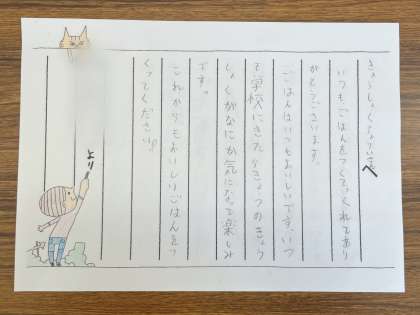 きゅうしょく
いつもごはんをつくってくれてあり
がとうございます。
ごはんはいつもおいしいです。いつ
も学校にきたらきょうのきゅう
しょくがなにか気になって楽しみ
です。
これからもおいしいごはんをつ
くってください。
より